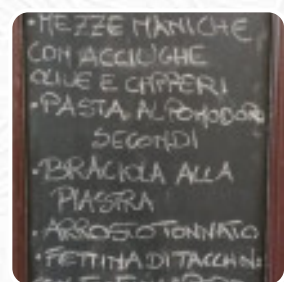 •MEZZE MANICHE
CON ACCIUGHE
OLIVE E CAPPERI
•PASTA AL POMODORO
SECONDI
•BRACIOLA ALLA
PIASTRA
•ARROSTO TONNATO
•FETTINA DI TACCHINO